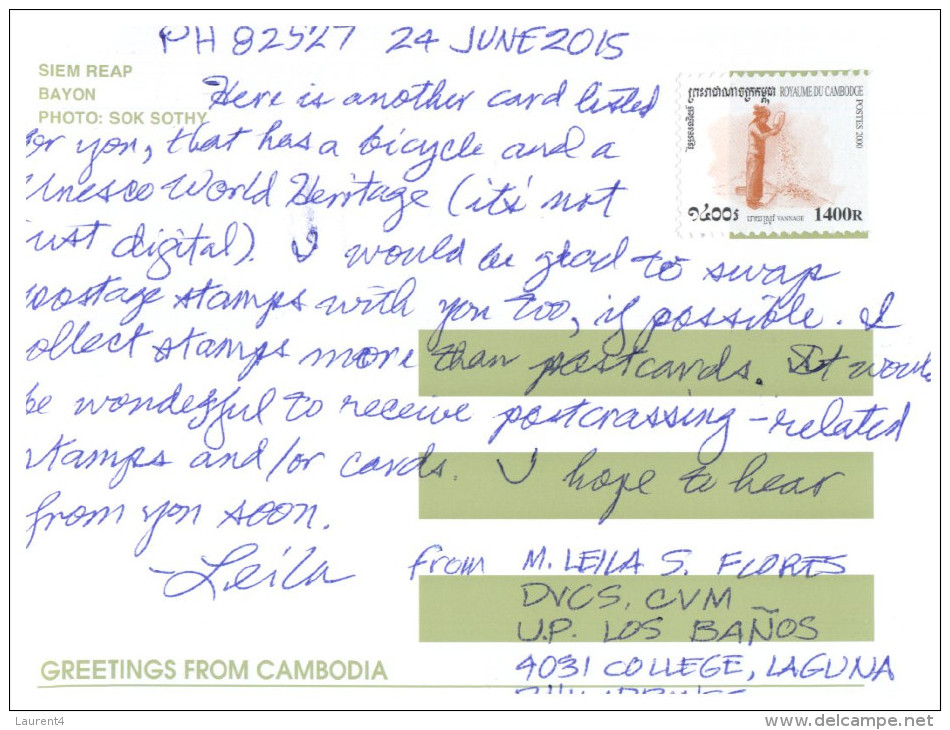 PH 82527 24 JUNE 2015
SIEM REAP
BAYON
PHOTO: SOK SOTHY
Here is another card listed
for you, that has a bicycle and a
Unesco World Heritage (it's not
just digital). I would be glad to swap
postage stamps with you too, if possible. I
collect stamps more than postcards. It would
be wonderful to receive postcrossing-related
stamps and/or cards. I hope to hear
from you soon.
-Leila
from M. LEILA S. FLORES
DVCS, CVM
U.P. LOS BAÑOS
4031 COLLEGE, LAGUNA
PHILIPPINES
GREETINGS FROM CAMBODIA
ព្រះរាជាណាចក្រកម្ពុជា ROYAUME DU CAMBODGE
POSTES 2000
១៤០០៛ VANNAGE 1400R
Laurent4
www.delcampe.net